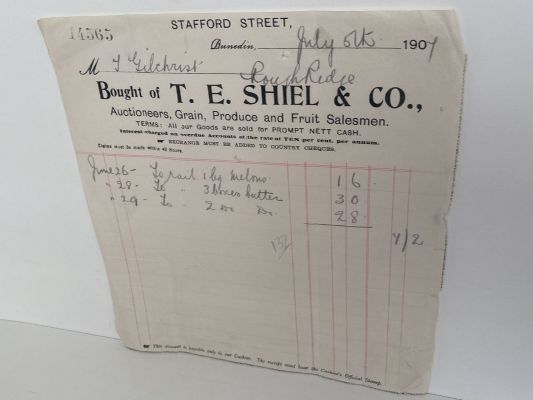 14565
STAFFORD STREET,
Dunedin, July 5th 1907
M J Gilchrist
Rough Ridge
Bought of T. E. SHIEL & CO.,
Auctioneers, Grain, Produce and Fruit Salesmen.
TERMS: All our Goods are sold for PROMPT NETT CASH.
Interest charged on overdue Accounts at the rate of TEN per cent. per annum.
☛ EXCHANGE MUST BE ADDED TO COUNTRY CHEQUES.
Claims must be made within 48 Hours.
June 26 - To rail 1 bg melons 1 6
" 28 - To " 3 boxes butter 3 0
" 29 - To " 2 Do Do. 2 8
7/2
132
☛ This account is payable only to our Cashier. The receipt must bear the Cashier's Official Stamp.